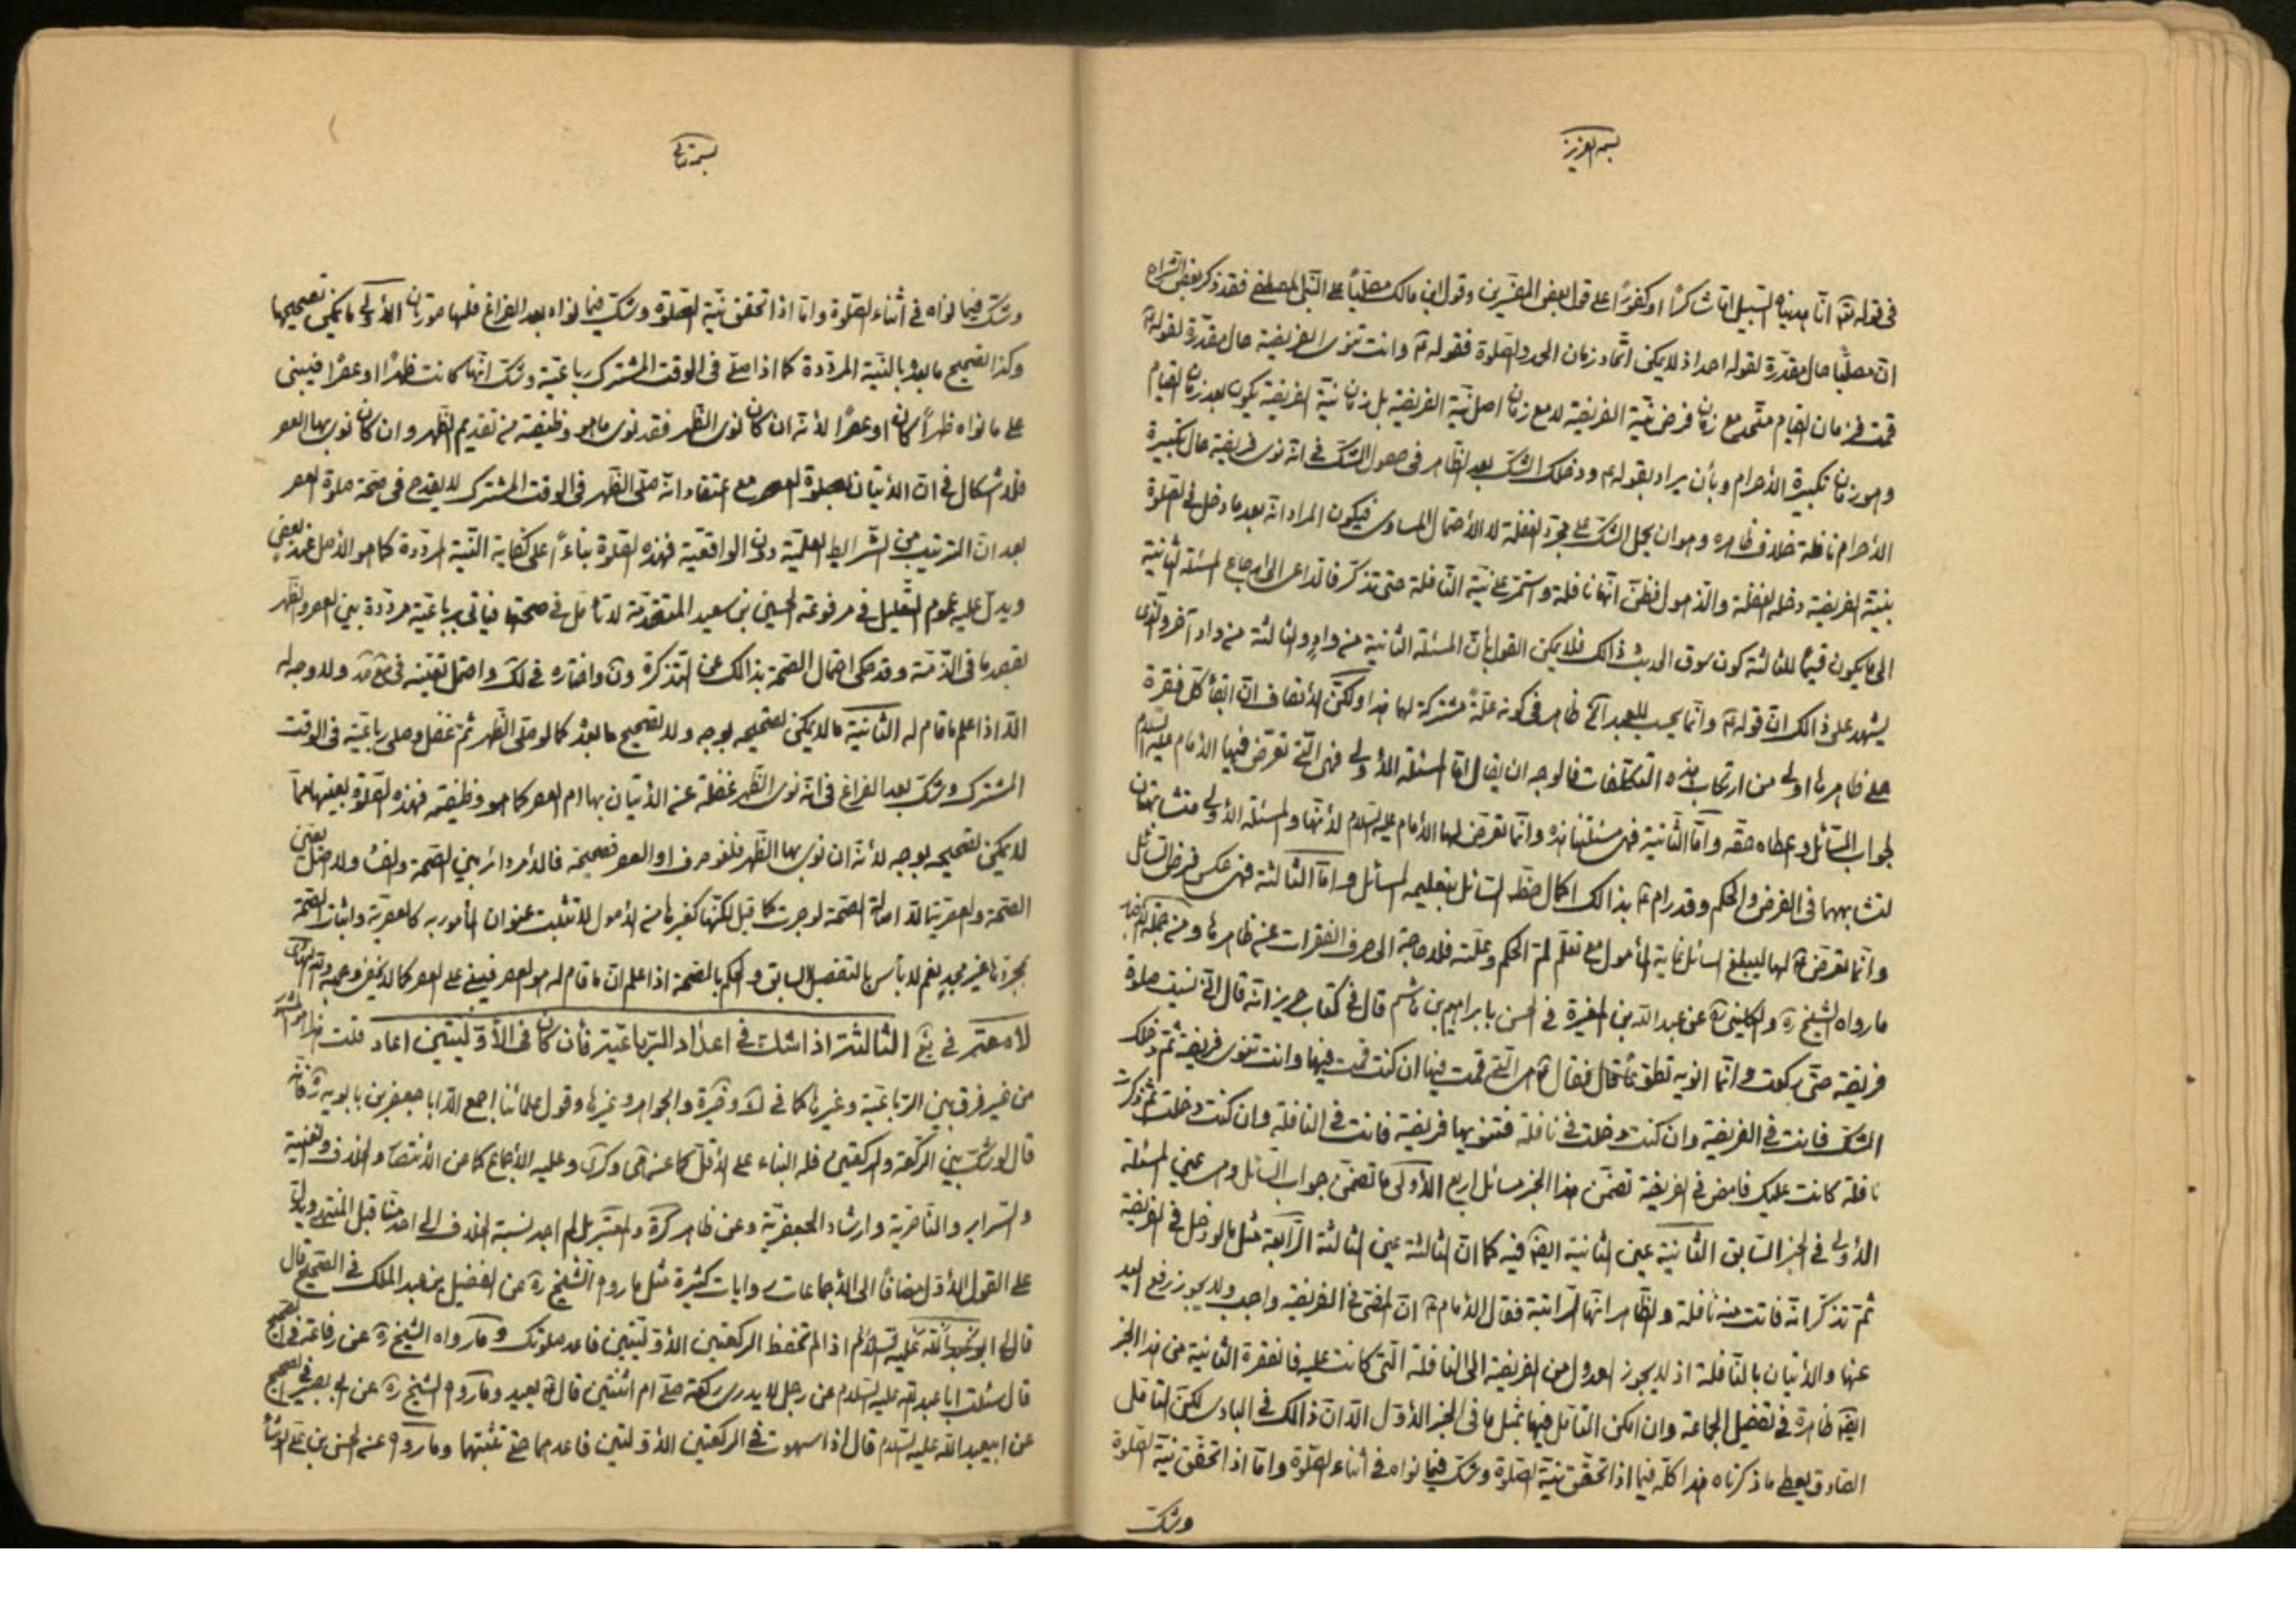 بسمه العزيز
فى قوله تعالى انا هديناه السبيل اما شاكرًا او كفورًا على قول بعض المفسرين وقول ابن مالك مصليًا على النبى المصطفى فقد ذكر بعض الشراح
ان مصليًا حال مقدرة لقوله احمد اذ لا يمكن اتحاد زمان الحمد والصلوة فقوله ع وانت تنوى الفريضة حال مقدرة لقوله ع
قمت فزمان القيام متحد مع زمان فرض نية الفريضة لا مع زمان اصل نية الفريضة بل زمان نية الفريضة يكون بعد زمان القيام
وهو زمان تكبيرة الأحرام وبأن يراد بقوله ع ودخلك الشك بعد الظاهر فى حصول الشك فى انه نوى فريضة حال تكبيرة
الأحرام نافلة خلاف ظاهره وهو ان يحمل الشك على مجرد الغفلة لا الأحتمال المساوى فيكون المراد انه بعد ما دخل فى الصلوة
بنية الفريضة دخله الغفلة والذهول فظن انها نافلة واستمر على نية النافلة حتى تذكر فالداعى الى ارجاع المسئلة الثانية
الى ما يكون قسيمًا للثالثة كون سوق الحديث ذالك فلا يمكن القول بأن المسئلة الثانية من واد والثالثة من واد آخر والذى
يشهد على ذالك ان قوله ع وانما يحسب للعبد آه ظاهر فى كونه علة مشتركة لها هذا ولكن الأنصاف ان ابقاء كل فقرة
على ظاهرها اولى من ارتكاب هذه التكلفات فالوجه ان يقال اما المسئلة الأولى فهى التى تعرض فيها الأمام عليه السلام
لجواب السائل وعطاه حقه واما الثانية فهى مسئلتنا هذه وانما تعرض لها الأمام عليه السلام لأنها والمسئلة الأولى متشابهتان
لتشابههما فى الفرض والحكم وقد رام ع بذالك اكمال حظ السائل بتعليمه المسائل واما الثالثة فهى عكس فرض السائل
وانما تعرض ع لها ليبلغ السائل غاية المأمول مع تعلم لم الحكم وعلته فلا حاجة الى صرف الفقرات عن ظاهرها ومن جملة الأخبار
ما رواه الشيخ ره والكلينى ره عن عبد الله بن المغيرة فى الحسن بابراهيم بن هاشم قال فى كتاب حريز انه قال انى نسيت صلوة
فريضة حتى ركعت وانما انويه تطوعًا قال فقال ع هى التى قمت فيها ان كنت قمت فيها وانت تنوى فريضة ثم دخلك
الشك فانت فى الفريضة وان كنت دخلت فى نافلة فتنويها فريضة فانت فى النافلة وان كنت دخلت ثم ذكرت
نافلة كانت عليك فامض فى الفريضة تضمن هذا الخبر مسائل اربع الأولى ما تضمن جواب السائل وهى عين المسئلة
الأولى فى الخبر السابق الثانية عين الثانية ايضًا فيه كما ان الثالثة عين الثالثة الرابعة مثل ما لو دخل فى الفريضة
ثم تذكر انه فاتت منه نافلة والظاهر انها الراتبة فقال الأمام ع ان المضى فى الفريضة واجب ولا يجوز رفع اليد
عنها والأتيان بالنافلة اذ لا يجوز العدول من الفريضة الى النافلة التى كانت عليه فالفقرة الثانية من هذا الخبر
ايضًا ظاهرة فى تفصيل الجماعة وان امكن التأمل فيها بمثل ما فى الخبر الأول الا ان ذالك فى البادى لكن التأمل
الصادق يعطى ما ذكرناه هذا كله فيما اذا تحقق نية الصلوة وشك فيما نواه فى اثناء الصلوة واما اذا تحقق نية الصلوة
وشك
بسمه تعالى
وشك فيما نواه فى أثناء الصلوة واما اذا تحقق نية الصلوة وشك فيما نواه بعد الفراغ فلها صورتان الأولى ما يمكن تصحيحها
وكذا تصحيح ما بعد بالنية المرددة كما اذا صلى فى الوقت المشترك رباعية وشك انها كانت ظهرًا او عصرًا فيبنى
على ما نواه ظهرًا كان او عصرًا لأنه ان كان نوى الظهر فقد نوى ما هو وظيفته من تقديم الظهر وان كان نوى بها العصر
فلا اشكال فى ان الأتيان بصلوة العصر مع اعتقاد انه صلى الظهر فى الوقت المشترك لا يقدح فى صحة صلوة العصر
بعد ان الترتيب من الشرايط العلمية دون الواقعية فهذه الصلوة بناءً على كفاية النية المرددة كما هو الأصل عند بعض
ويدل عليه عموم التعليل فى مرفوعة الحسين بن سعيد المتقدمة لا تأمل فى صحتها فيأتى برباعية مرددة بين العصر والظهر
بقصد ما فى الذمة وقد حكى احتمال الصحة بذالك عن التذكرة ون واختاره فى لك واحتمل تعينه فى ولا وجه له
الا اذا علم ما قام له الثانية ما لا يمكن تصحيحه بوجه ولا تصحيح ما بعد كما لو صلى الظهر ثم غفل وصلى رباعية فى الوقت
المشترك وشك بعد الفراغ فى انه نوى الظهر غفلة عن الأتيان بها ام العصر كما هو وظيفته فهذه الصلوة بعينها مما
لا يمكن تصحيحه بوجه لأنه ان نوى بها الظهر فلغو صرف او العصر فصحيحة فالأمر دائر بين الصحة والفساد ولا اصل يعين
الصحة والعصرية الا اصالة الصحة لو جرت كما قيل لكنها كغيرها من الأصول لا تثبت عنوان المأمور به كالعصرية واثبات الصحة
بمجردها غير مجد نعم لا بأس بالتفصيل السابق والحكم بالصحة اذا علم ان ما قام له هو العصر فيبنى على العصر كما لا يخفى وجهه والله الهادى
لأمعتبر فى يع الثالثة اذا شك فى اعداد الرباعية فأن كان فى الأوليتين اعاد قلت هذا هو المشهور
من غير فرق بين الرباعية وغيرها كما فى والذخيرة والجواهر وغيرها وقول علمائنا اجمع الا ابا جعفر بن بابويه ره فأنه
قال لو شك بين الركعة والركعتين فله البناء على الأقل كما عنه وكرى وعليه الأجماع كما عن الأنتصار والخلاف والغنية
والسراير والناصرية وارشاد الجعفرية وعن ظاهر كرة والمعتبر بل لم اجد نسبة الخلاف الى احد منا قبل المنتهى ويدل
على القول الأول مضافًا الى الأجماعات روايات كثيرة مثل ما رواه الشيخ ره عن الفضيل بن عبد الملك فى الصحيح قال
قال لى ابو عبد الله عليه السلام اذا لم تحفظ الركعتين الأوليتين فاعد صلوتك وما رواه الشيخ ره عن رفاعة فى الصحيح
قال سئلت ابا عبد الله عليه السلام عن رجل لا يدرى ركعة صلى ام اثنتين قال ع يعيد وما رواه الشيخ ره عن ابى بصير فى الصحيح
عن ابيعبد الله عليه السلام قال اذا سهوت فى الركعتين الأولتين فاعدهما حتى تثبتهما وما رواه عنه الحسن بن على الوشاء